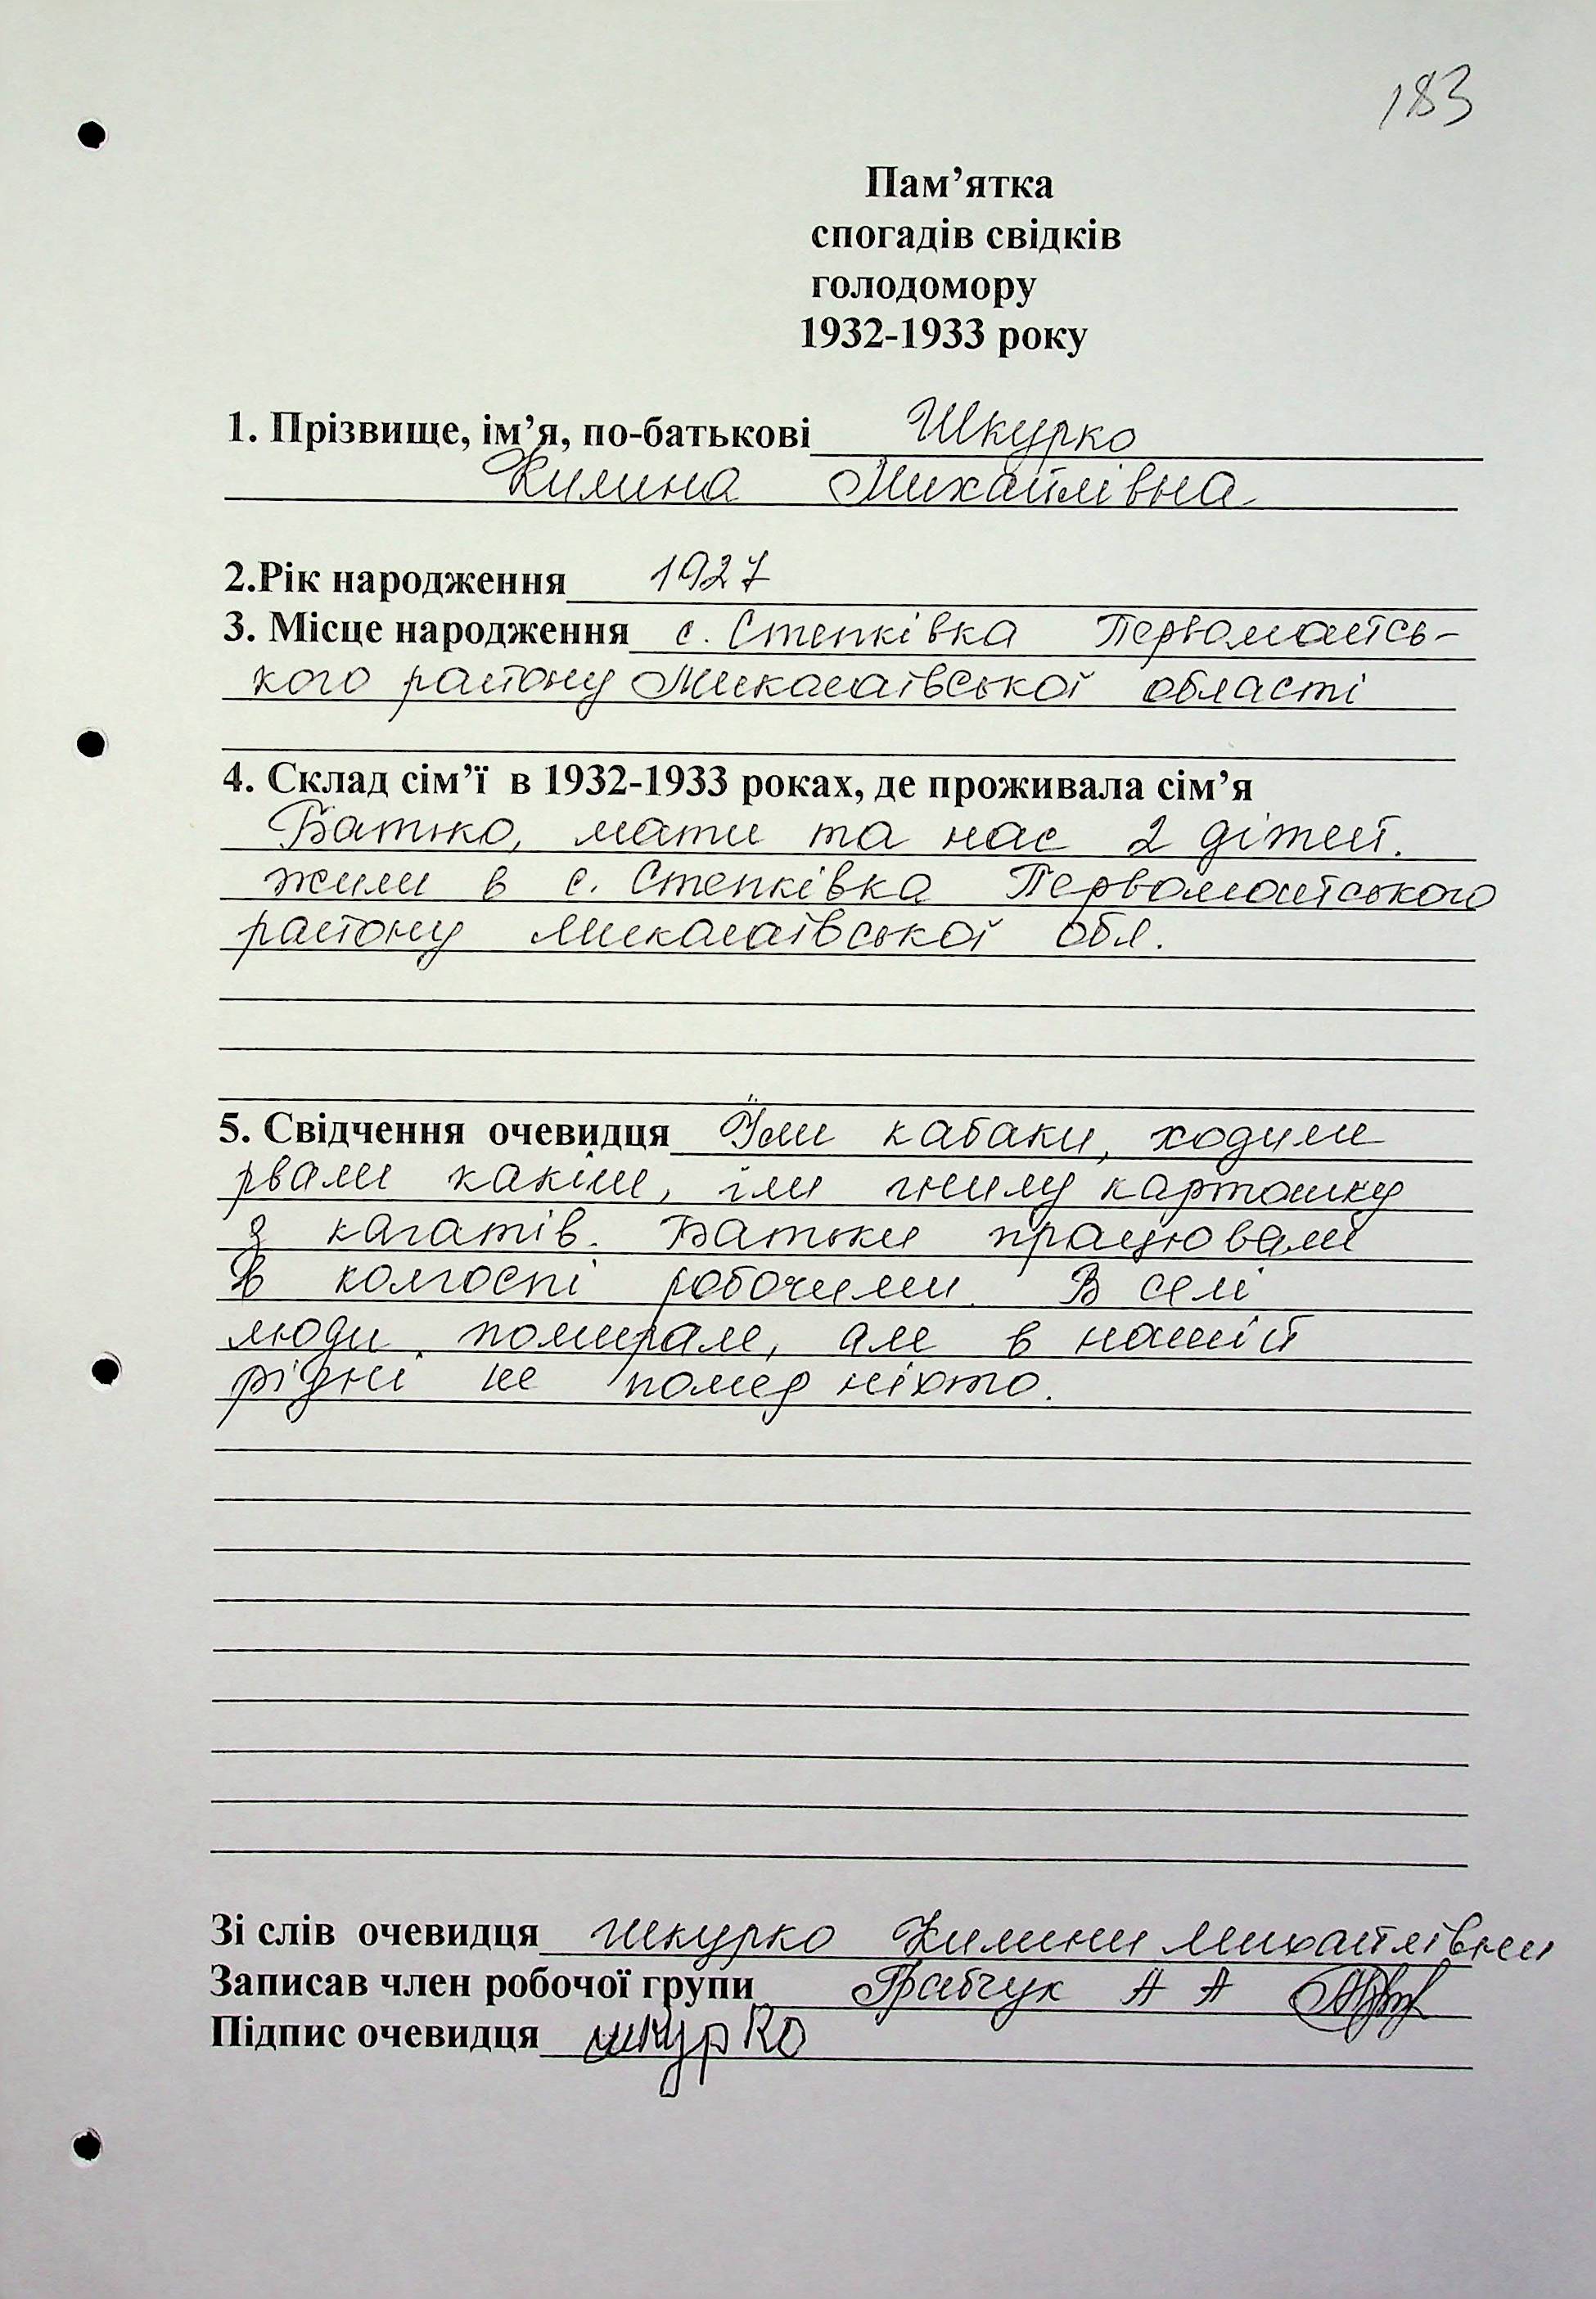 183
Пам’ятка
спогадів свідків
голодомору
1932-1933 року
1. Прізвище, ім’я, по-батькові Шкурко
Килина Михайлівна
2.Рік народження 1927
3. Місце народження с. Степківка Первомайсь-
кого району Миколаївської області
4. Склад сім’ї в 1932-1933 роках, де проживала сім’я
Батько, мати та нас 2 дітей.
жили в с. Степківка Первомайського
району Миколаївської обл.
5. Свідчення очевидця Їли кабаки, ходили
рвали калачики, їли гнилу картошку
з кагатів. Батьки працювали
в колгоспі робочими. В селі
люди помирали, але в нашій
рідні не помер ніхто.
Зі слів очевидця Шкурко Килини Михайлівни
Записав член робочої групи Грабчук А А
Підпис очевидця шкурко